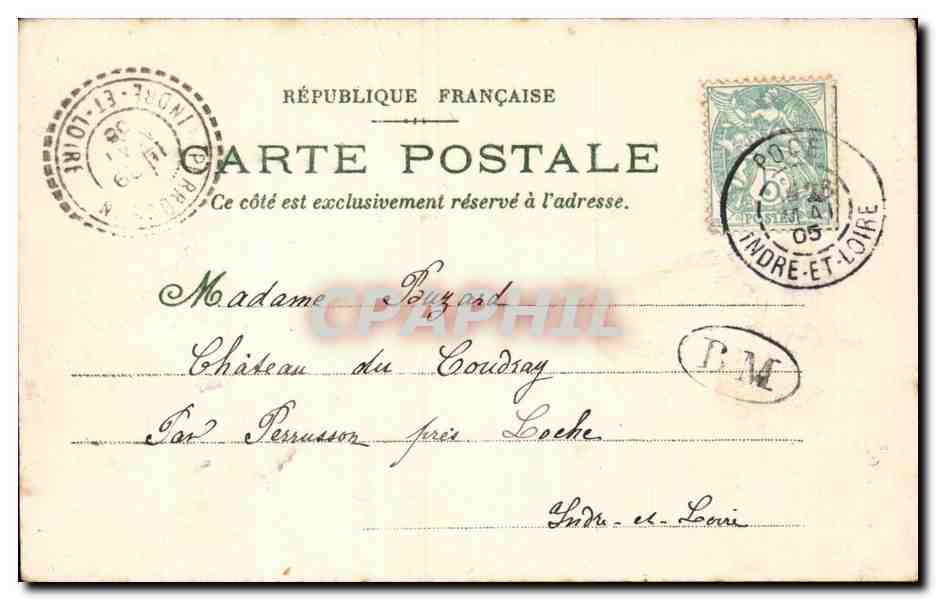 RÉPUBLIQUE FRANÇAISE
CARTE POSTALE
Ce côté est exclusivement réservé à l'adresse.
INDRE-ET-LOIRE
POCE
MAI
05
INDRE-ET-LOIRE
5
POSTES
Madame Buzard
CPAPHIL
Château du Coudray
BM
Par Perrusson près Loche
Indre-et-Loire